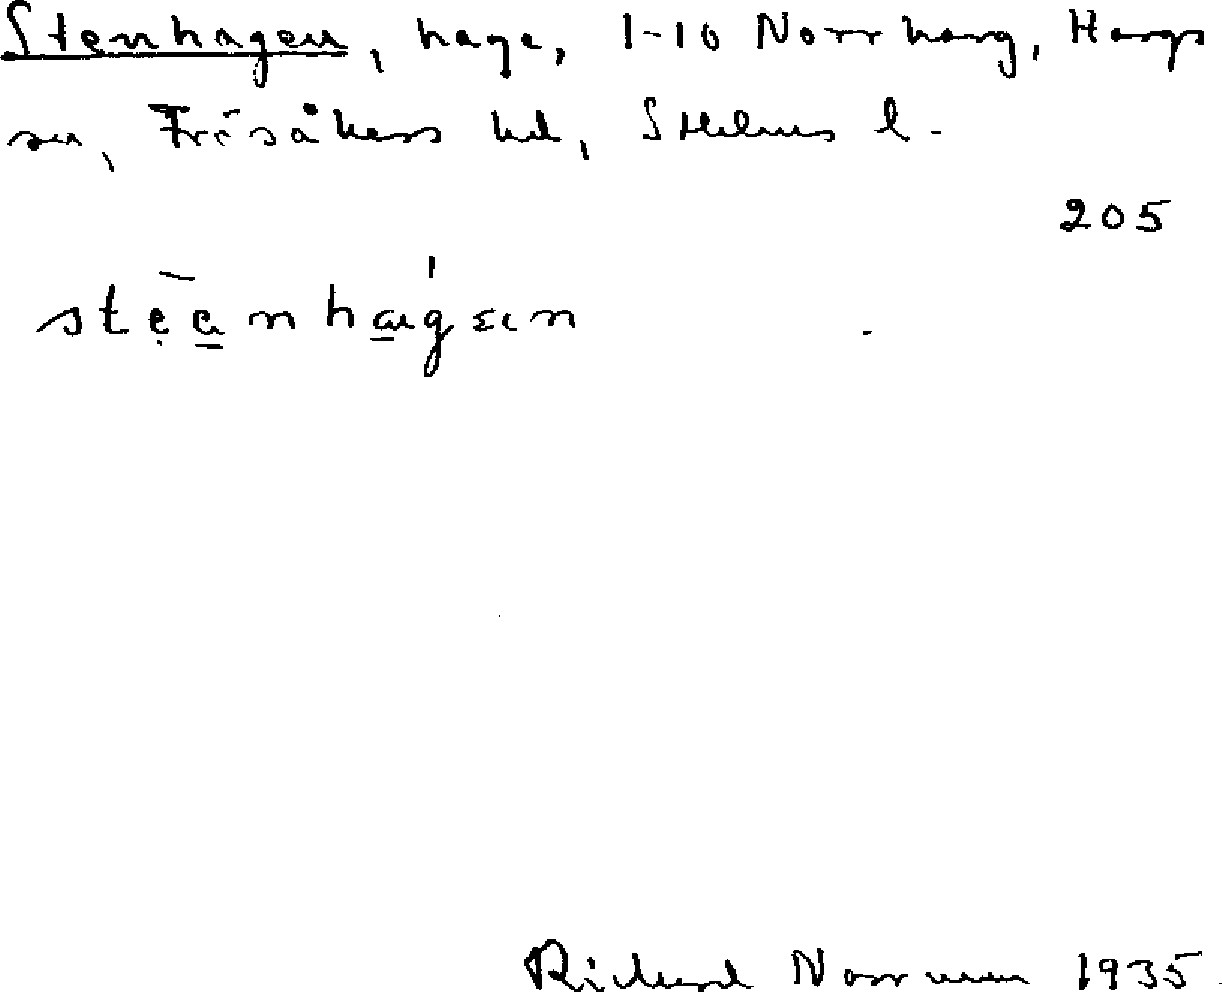 Stenhagen, hage, 1-10 Norrharg, Hargs
sn, Frösåkers hd, Sthlms l.
205
stẹ̄a̱nha̱gɛn
Richard Norrman 1935